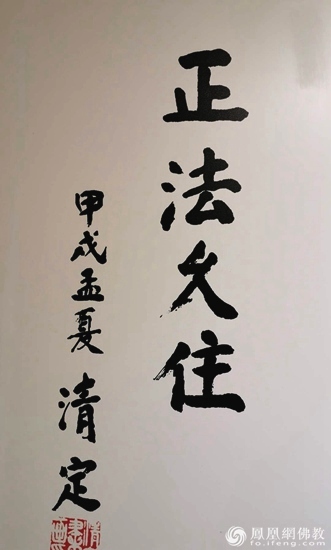 正法久住
甲戌孟夏
清定
鳳凰網佛教
fo.ifeng.com